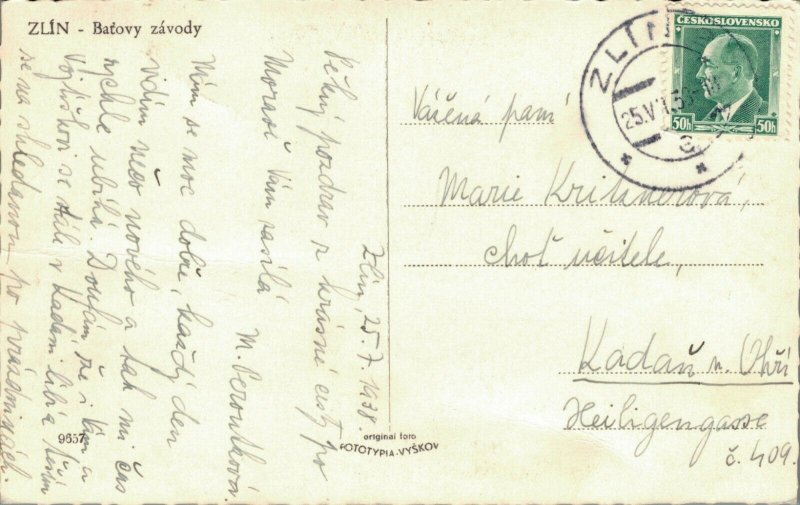 ZLÍN - Baťovy závody
Zlín, 25. 7. 1938.
Pěkný pozdrav z krásné cesty po
Moravě Vám zasílá
M. Peroutková.
Mám se moc dobře, každý den
vidím něco nového a tak mi čas
rychle ubíhá. Doufám, že i Vám a
Vojtíškovi se stále v Kadani líbí a těším
se na shledanou po prázdninách.
9657
original foto
FOTOTYPIA-VYŠKOV
ČESKOSLOVENSKO
50h 50h
ZLÍN
25.V
Vážená paní
Marie Kritznerová,
choť učitele,
Kadaň n. Ohří
Heiligengasse
č. 409.